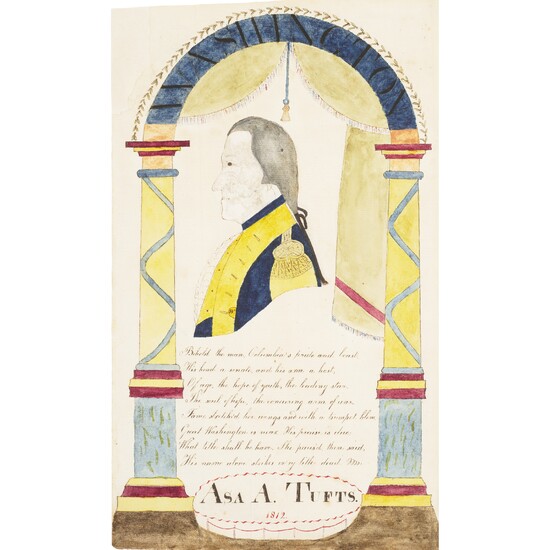 WASHINGTON
Behold the man, Columbia's pride and boast,
His head a senate, and his arm a host,
Of age, the hope of youth, the leading star
The soul of hope, the conquering arm of war,
Fame stretched her wings and with a trumpet blew
Great Washington is near His praise is due.
What title shall he have, She paus'd then said,
His name alone strikes every title dead
ASA A. TUFTS.
1812.